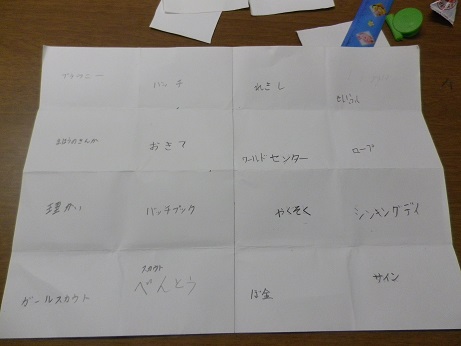 ブラウニー
バッチ
れきし
おきて
ワールドセンター
ロープ
バッチブック
やくそく
シンキングデイ
ガールスカウト
スカウト
べんとう
ぼ金
サイン